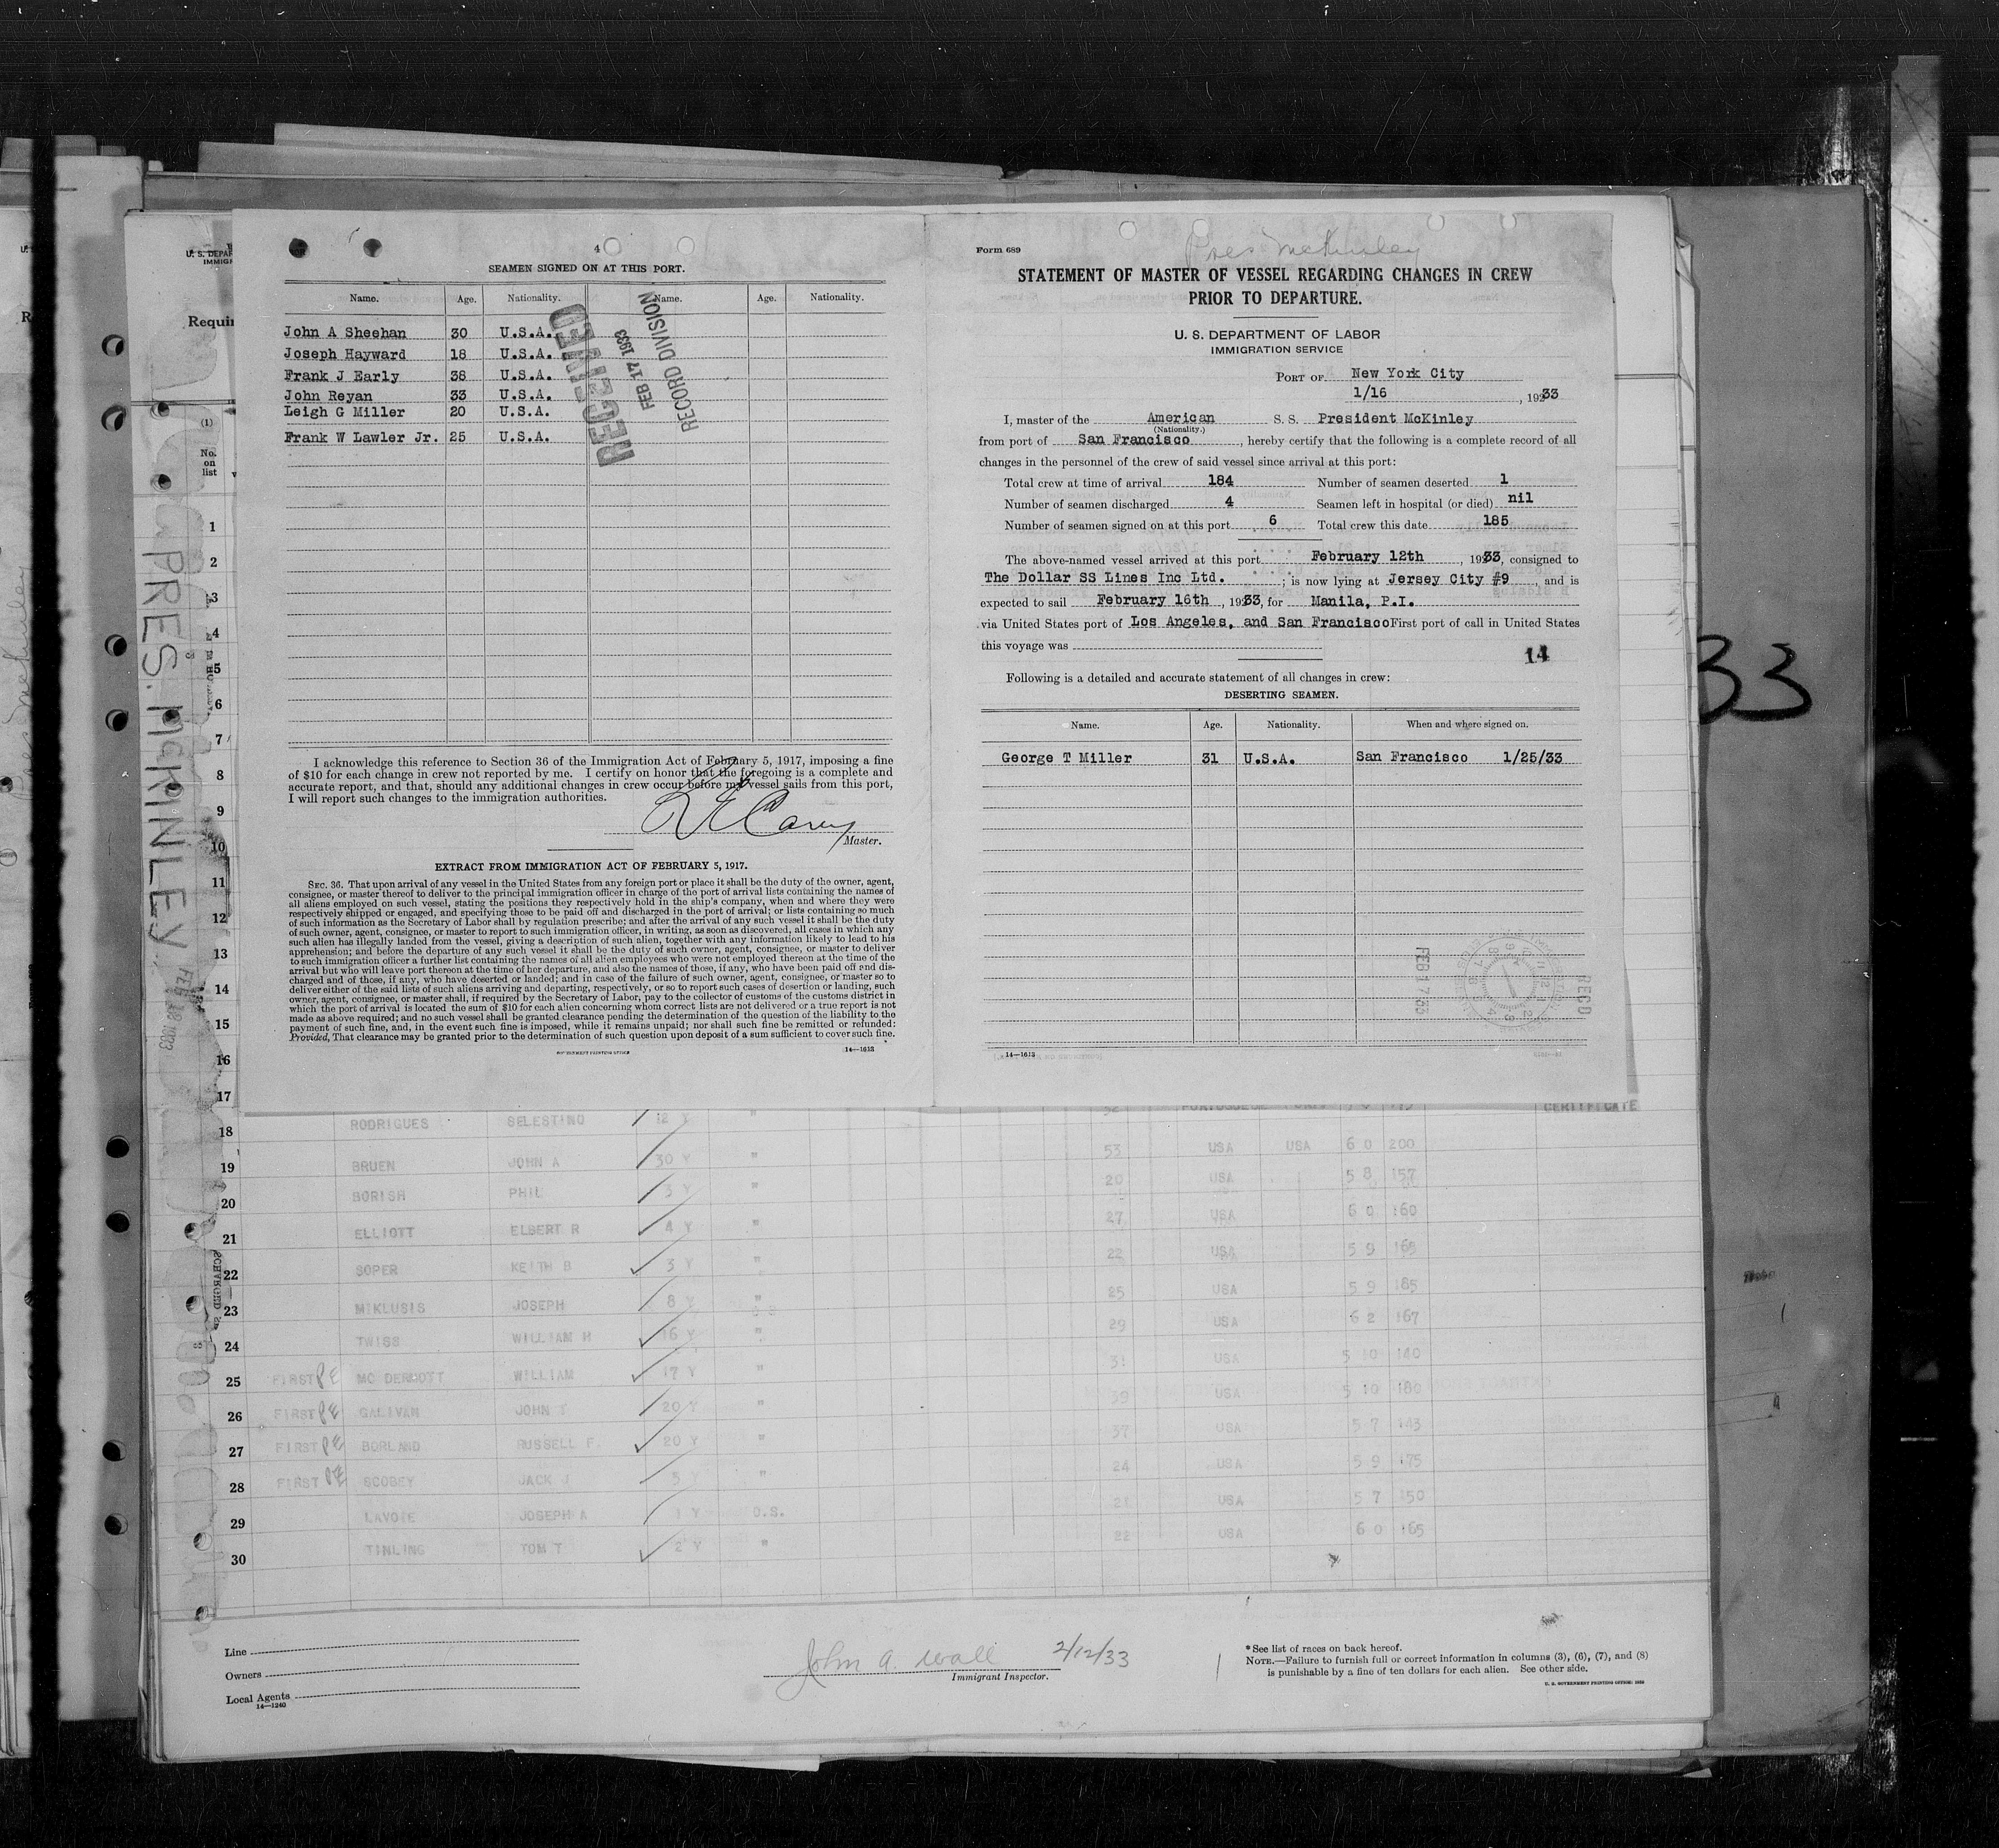 4
SEAMEN SIGNED ON AT THIS PORT.
Name. Age. Nationality. Name. Age. Nationality.
John A Sheehan 30 U.S.A.
Joseph Hayward 18 U.S.A.
Frank J Early 38 U.S.A.
John Reyan 33 U.S.A.
Leigh G Miller 20 U.S.A.
Frank W Lawler Jr. 25 U.S.A.
RECEIVED
FEB 17 1933
RECORD DIVISION
I acknowledge this reference to Section 36 of the Immigration Act of February 5, 1917, imposing a fine
of $10 for each change in crew not reported by me. I certify on honor that the foregoing is a complete and
accurate report, and that, should any additional changes in crew occur before my vessel sails from this port,
I will report such changes to the immigration authorities.
Master.
EXTRACT FROM IMMIGRATION ACT OF FEBRUARY 5, 1917.
SEC. 36. That upon arrival of any vessel in the United States from any foreign port or place it shall be the duty of the owner, agent,
consignee, or master thereof to deliver to the principal immigration officer in charge of the port of arrival lists containing the names of
all aliens employed on such vessel, stating the positions they respectively hold in the ship's company, when and where they were
respectively shipped or engaged, and specifying those to be paid off and discharged in the port of arrival; or lists containing so much
of such information as the Secretary of Labor shall by regulation prescribe; and after the arrival of any such vessel it shall be the duty
of such owner, agent, consignee, or master to report to such immigration officer, in writing, as soon as discovered, all cases in which any
such alien has illegally landed from the vessel, giving a description of such alien, together with any information likely to lead to his
apprehension; and before the departure of any such vessel it shall be the duty of such owner, agent, consignee, or master to deliver
to such immigration officer a further list containing the names of all alien employees who were not employed thereon at the time of the
arrival but who will leave port thereon at the time of her departure, and also the names of those, if any, who have been paid off and dis-
charged and of those, if any, who have deserted or landed; and in case of the failure of such owner, agent, consignee, or master so to
deliver either of the said lists of such aliens arriving and departing, respectively, or so to report such cases of desertion or landing, such
owner, agent, consignee, or master shall, if required by the Secretary of Labor, pay to the collector of customs of the customs district in
which the port of arrival is located the sum of $10 for each alien concerning whom correct lists are not delivered or a true report is not
made as above required; and no such vessel shall be granted clearance pending the determination of the question of the liability to the
payment of such fine, and, in the event such fine is imposed, while it remains unpaid; nor shall such fine be remitted or refunded:
Provided, That clearance may be granted prior to the determination of such question upon deposit of a sum sufficient to cover such fine.
GOVERNMENT PRINTING OFFICE 14—1613
Form 689
Pres McKinley
STATEMENT OF MASTER OF VESSEL REGARDING CHANGES IN CREW
PRIOR TO DEPARTURE.
U. S. DEPARTMENT OF LABOR
IMMIGRATION SERVICE
PORT OF New York City
1/16, 1933
I, master of the American S. S. President McKinley
(Nationality.)
from port of San Francisco, hereby certify that the following is a complete record of all
changes in the personnel of the crew of said vessel since arrival at this port:
Total crew at time of arrival 184 Number of seamen deserted 1
Number of seamen discharged 4 Seamen left in hospital (or died) nil
Number of seamen signed on at this port 6 Total crew this date 185
The above-named vessel arrived at this port February 12th, 1933, consigned to
The Dollar SS Lines Inc Ltd.; is now lying at Jersey City #9, and is
expected to sail February 16th, 1933, for Manila, P.I.
via United States port of Los Angeles, and San Francisco First port of call in United States
this voyage was
14
Following is a detailed and accurate statement of all changes in crew:
DESERTING SEAMEN.
Name. Age. Nationality. When and where signed on.
George T Miller 31 U.S.A. San Francisco 1/25/33
FEB 17 33
REC'D
14—1613
PRES. McKINLEY
33
U. S. DEPAR
IMMIGR
Requir
(1)
No.
on
list
1
2
3
4
5
6
7
8
9
10
11
12
13
14
15
16
17
CERTIFICATE
18 RODRIGUES SELESTINO 12 Y "
19 BRUEN JOHN A 30 Y " 53 USA USA 6 0 200
20 BORISH PHIL 3 Y " 20 USA 5 8 157
21 ELLIOTT ELBERT R 4 Y " 27 USA 6 0 160
22 SOPER KEITH B 3 Y " 22 USA 5 9 165
23 MIKLUSIS JOSEPH 8 Y " 25 USA 5 9 185
24 TWISS WILLIAM H 16 Y " 29 USA 6 2 167
25 FIRST PE MC DERMOTT WILLIAM 17 Y " 31 USA 5 10 140
26 FIRST PE GALIVAN JOHN T 20 Y " 39 USA 5 10 180
27 FIRST PE BORLAND RUSSELL F. 20 Y " 37 USA 5 7 143
28 FIRST PE SCOBEY JACK J 5 Y " 24 USA 5 9 175
29 LAVOIE JOSEPH A 1 Y O.S. 21 USA 5 7 150
30 TINLING TOM T 2 Y " 22 USA 6 0 165
Line
Owners
Local Agents
14—1240
John A. Wall 2/12/33
Immigrant Inspector.
*See list of races on back hereof.
NOTE.—Failure to furnish full or correct information in columns (3), (6), (7), and (8)
is punishable by a fine of ten dollars for each alien. See other side.